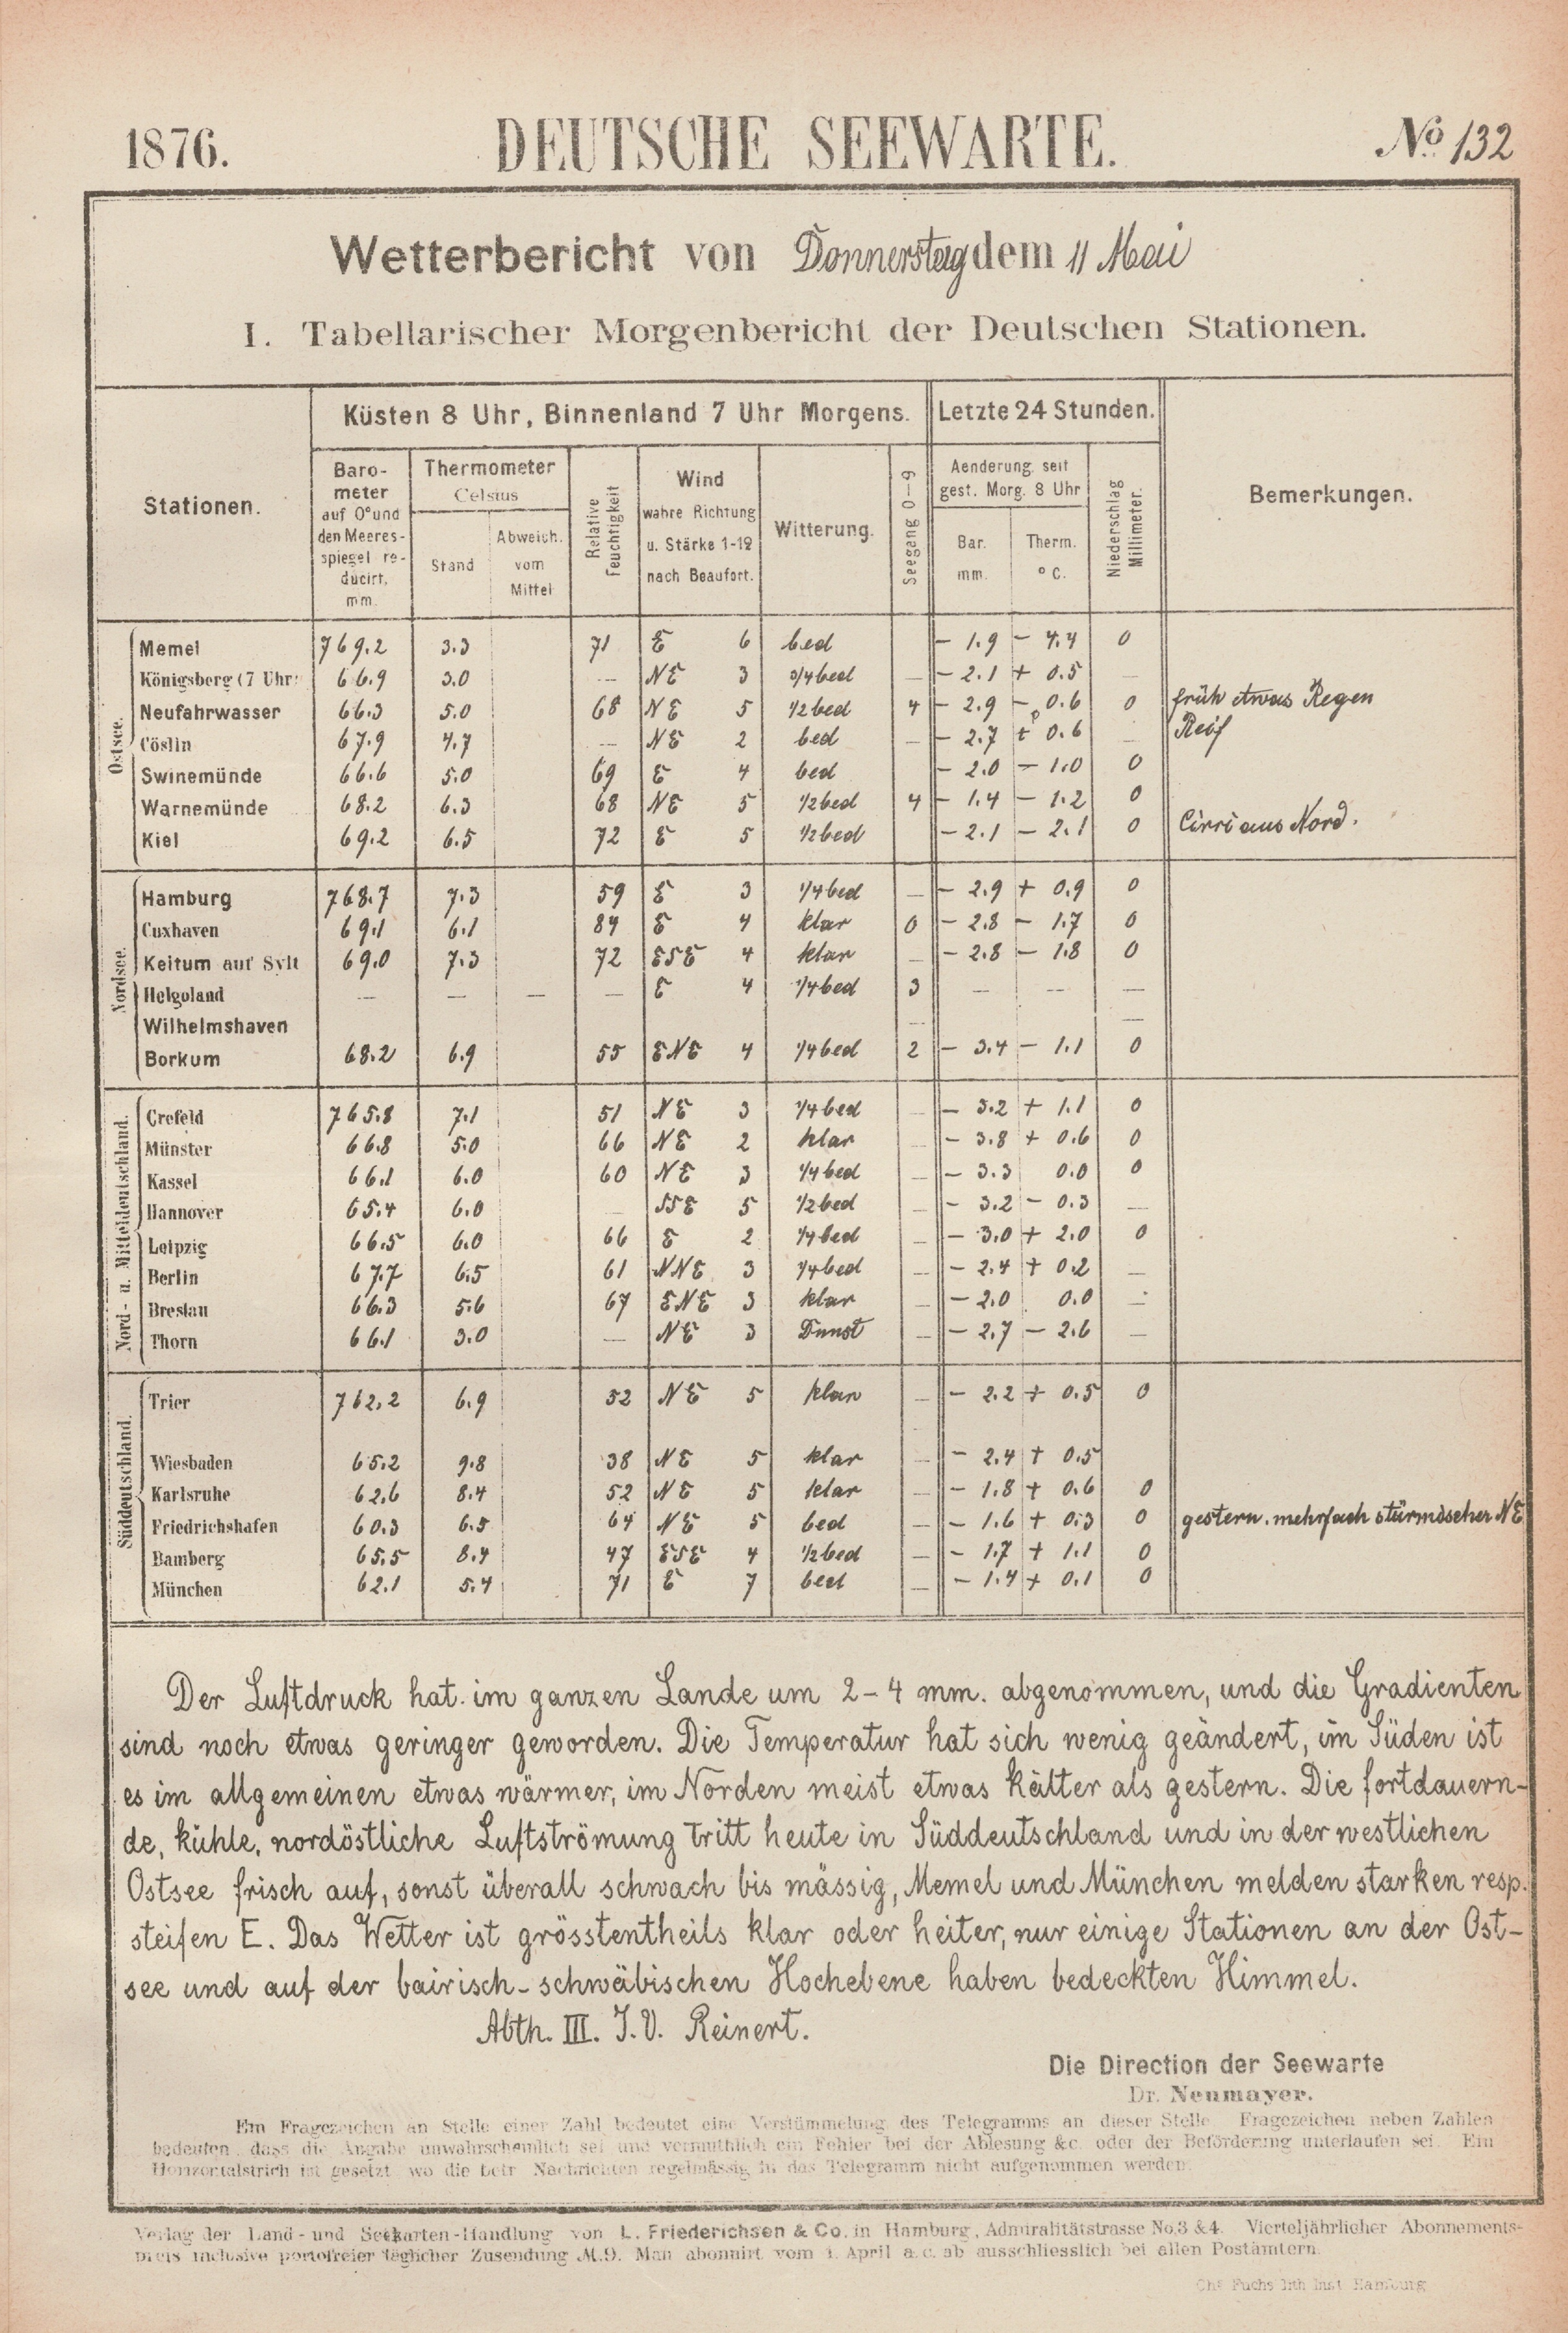 1876. DEUTSCHE SEEWARTE. No. 132
Wetterbericht von Donnerstag dem 11 Mai
I. Tabellarischer Morgenbericht der Deutschen Stationen.
Stationen. Küsten 8 Uhr, Binnenland 7 Uhr Morgens. Letzte 24 Stunden. Bemerkungen.
Barometer auf 0° und den Meeresspiegel reducirt, mm. Thermometer Celsius Stand Abweich. vom Mittel Relative Feuchtigkeit Wind wahre Richtung u. Stärke 1-12 nach Beaufort. Witterung. Seegang 0-9 Aenderung seit gest. Morg. 8 Uhr Bar. mm. Therm. ° C. Niederschlag Millimeter.
Ostsee.
Memel 769.2 3.3 71 E 6 bed - 1.9 - 4.4 0
Königsberg (7 Uhr) 66.9 3.0 — NE 3 3/4 bed — - 2.1 + 0.5 —
Neufahrwasser 66.3 5.0 68 NE 5 1/2 bed 4 - 2.9 - 0.6 0 früh etwas Regen
Cöslin 67.9 4.7 — NE 2 bed — - 2.7 + 0.6 — Reif
Swinemünde 66.6 5.0 69 E 4 bed - 2.0 - 1.0 0
Warnemünde 68.2 6.3 68 NE 5 1/2 bed 4 - 1.4 - 1.2 0
Kiel 69.2 6.5 72 E 5 1/2 bed - 2.1 - 2.1 0 Cirri aus Nord.
Nordsee.
Hamburg 768.7 7.3 59 E 3 1/4 bed — - 2.9 + 0.9 0
Cuxhaven 69.1 6.1 84 E 4 klar 0 - 2.8 - 1.7 0
Keitum auf Sylt 69.0 7.3 72 ESE 4 klar — - 2.8 - 1.8 0
Helgoland — — — — E 4 1/4 bed 3 — — —
Wilhelmshaven — —
Borkum 68.2 6.9 55 ENE 4 1/4 bed 2 - 3.4 - 1.1 0
Nord- u. Mitteldeutschland.
Crefeld 765.8 7.1 51 NE 3 1/4 bed — - 3.2 + 1.1 0
Münster 66.8 5.0 66 NE 2 klar — - 3.8 + 0.6 0
Kassel 66.1 6.0 60 NE 3 1/4 bed — - 3.3 0.0 0
Hannover 65.4 6.0 — SSE 5 1/2 bed - 3.2 - 0.3 —
Leipzig 66.5 6.0 66 E 2 1/4 bed — - 3.0 + 2.0 0
Berlin 67.7 6.5 61 NNE 3 1/4 bed — - 2.4 + 0.2 —
Breslau 66.3 5.6 67 ENE 3 klar — - 2.0 0.0 —
Thorn 66.1 3.0 — NE 3 Dunst — - 2.7 - 2.6 —
Süddeutschland.
Trier 762.2 6.9 52 NE 5 klar — - 2.2 + 0.5 0
Wiesbaden 65.2 9.8 38 NE 5 klar — - 2.4 + 0.5
Karlsruhe 62.6 8.4 52 NE 5 klar — - 1.8 + 0.6 0
Friedrichshafen 60.3 6.5 64 NE 5 bed — - 1.6 + 0.3 0 gestern mehrfach stürmischer NE
Bamberg 65.5 8.4 47 ESE 4 1/2 bed — - 1.7 + 1.1 0
München 62.1 5.4 71 E 7 bed — - 1.4 + 0.1 0
Der Luftdruck hat im ganzen Lande um 2-4 mm. abgenommen, und die Gradienten
sind noch etwas geringer geworden. Die Temperatur hat sich wenig geändert, im Süden ist
es im allgemeinen etwas wärmer, im Norden meist etwas kälter als gestern. Die fortdauern-
de, kühle, nordöstliche Luftströmung tritt heute in Süddeutschland und in der westlichen
Ostsee frisch auf, sonst überall schwach bis mässig, Memel und München melden starken resp.
steifen E. Das Wetter ist grösstentheils klar oder heiter, nur einige Stationen an der Ost-
see und auf der bairisch-schwäbischen Hochebene haben bedeckten Himmel.
Abth. III. I.V. Reinert.
Die Direction der Seewarte
Dr. Neumayer.
Ein Fragezeichen an Stelle einer Zahl bedeutet eine Verstümmelung des Telegramms an dieser Stelle. Fragezeichen neben Zahlen
bedeuten, dass die Angabe unwahrscheinlich sei und vermuthlich ein Fehler bei der Ablesung &c. oder der Beförderung unterlaufen sei. Ein
Horizontalstrich ist gesetzt, wo die betr. Nachrichten regelmässig in das Telegramm nicht aufgenommen werden.
Verlag der Land- und Seekarten-Handlung von L. Friederichsen & Co. in Hamburg, Admiralitätstrasse No. 3 & 4. Vierteljährlicher Abonnements-
preis inclusive portofreier täglicher Zusendung M. 9. Man abonnirt vom 1. April a. c. ab ausschliesslich bei allen Postämtern.
Chs Fuchs lith Inst Hamburg